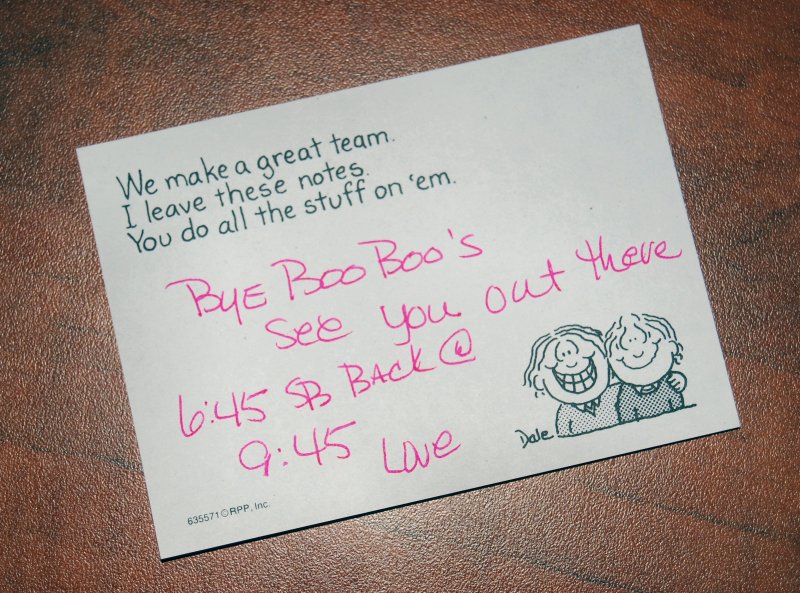 We make a great team.
I leave these notes.
You do all the stuff on 'em.
BYE BOO BOO'S
see you out there
6:45 SB BACK @
9:45 Love
Dale
635571 © RPP, Inc.